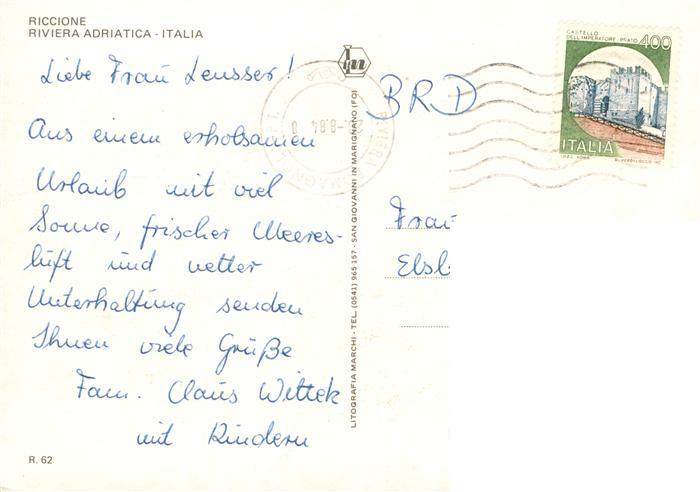 RICCIONE
RIVIERA ADRIATICA - ITALIA
Liebe Frau Leusser!
Aus einem erholsamen
Urlaub mit viel
Sonne, frischer Meeres-
luft und netter
Unterhaltung senden
Ihnen viele Grüße
Fam. Claus Wittek
mit Kindern
R. 62
LITOGRAFIA MARCHI - TEL. (0541) 965 157 - SAN GIOVANNI IN MARIGNANO (FO)
lm
BRD
CASTELLO
DELL'IMPERATORE - PRATO
400
ITALIA
Frau
Elsb